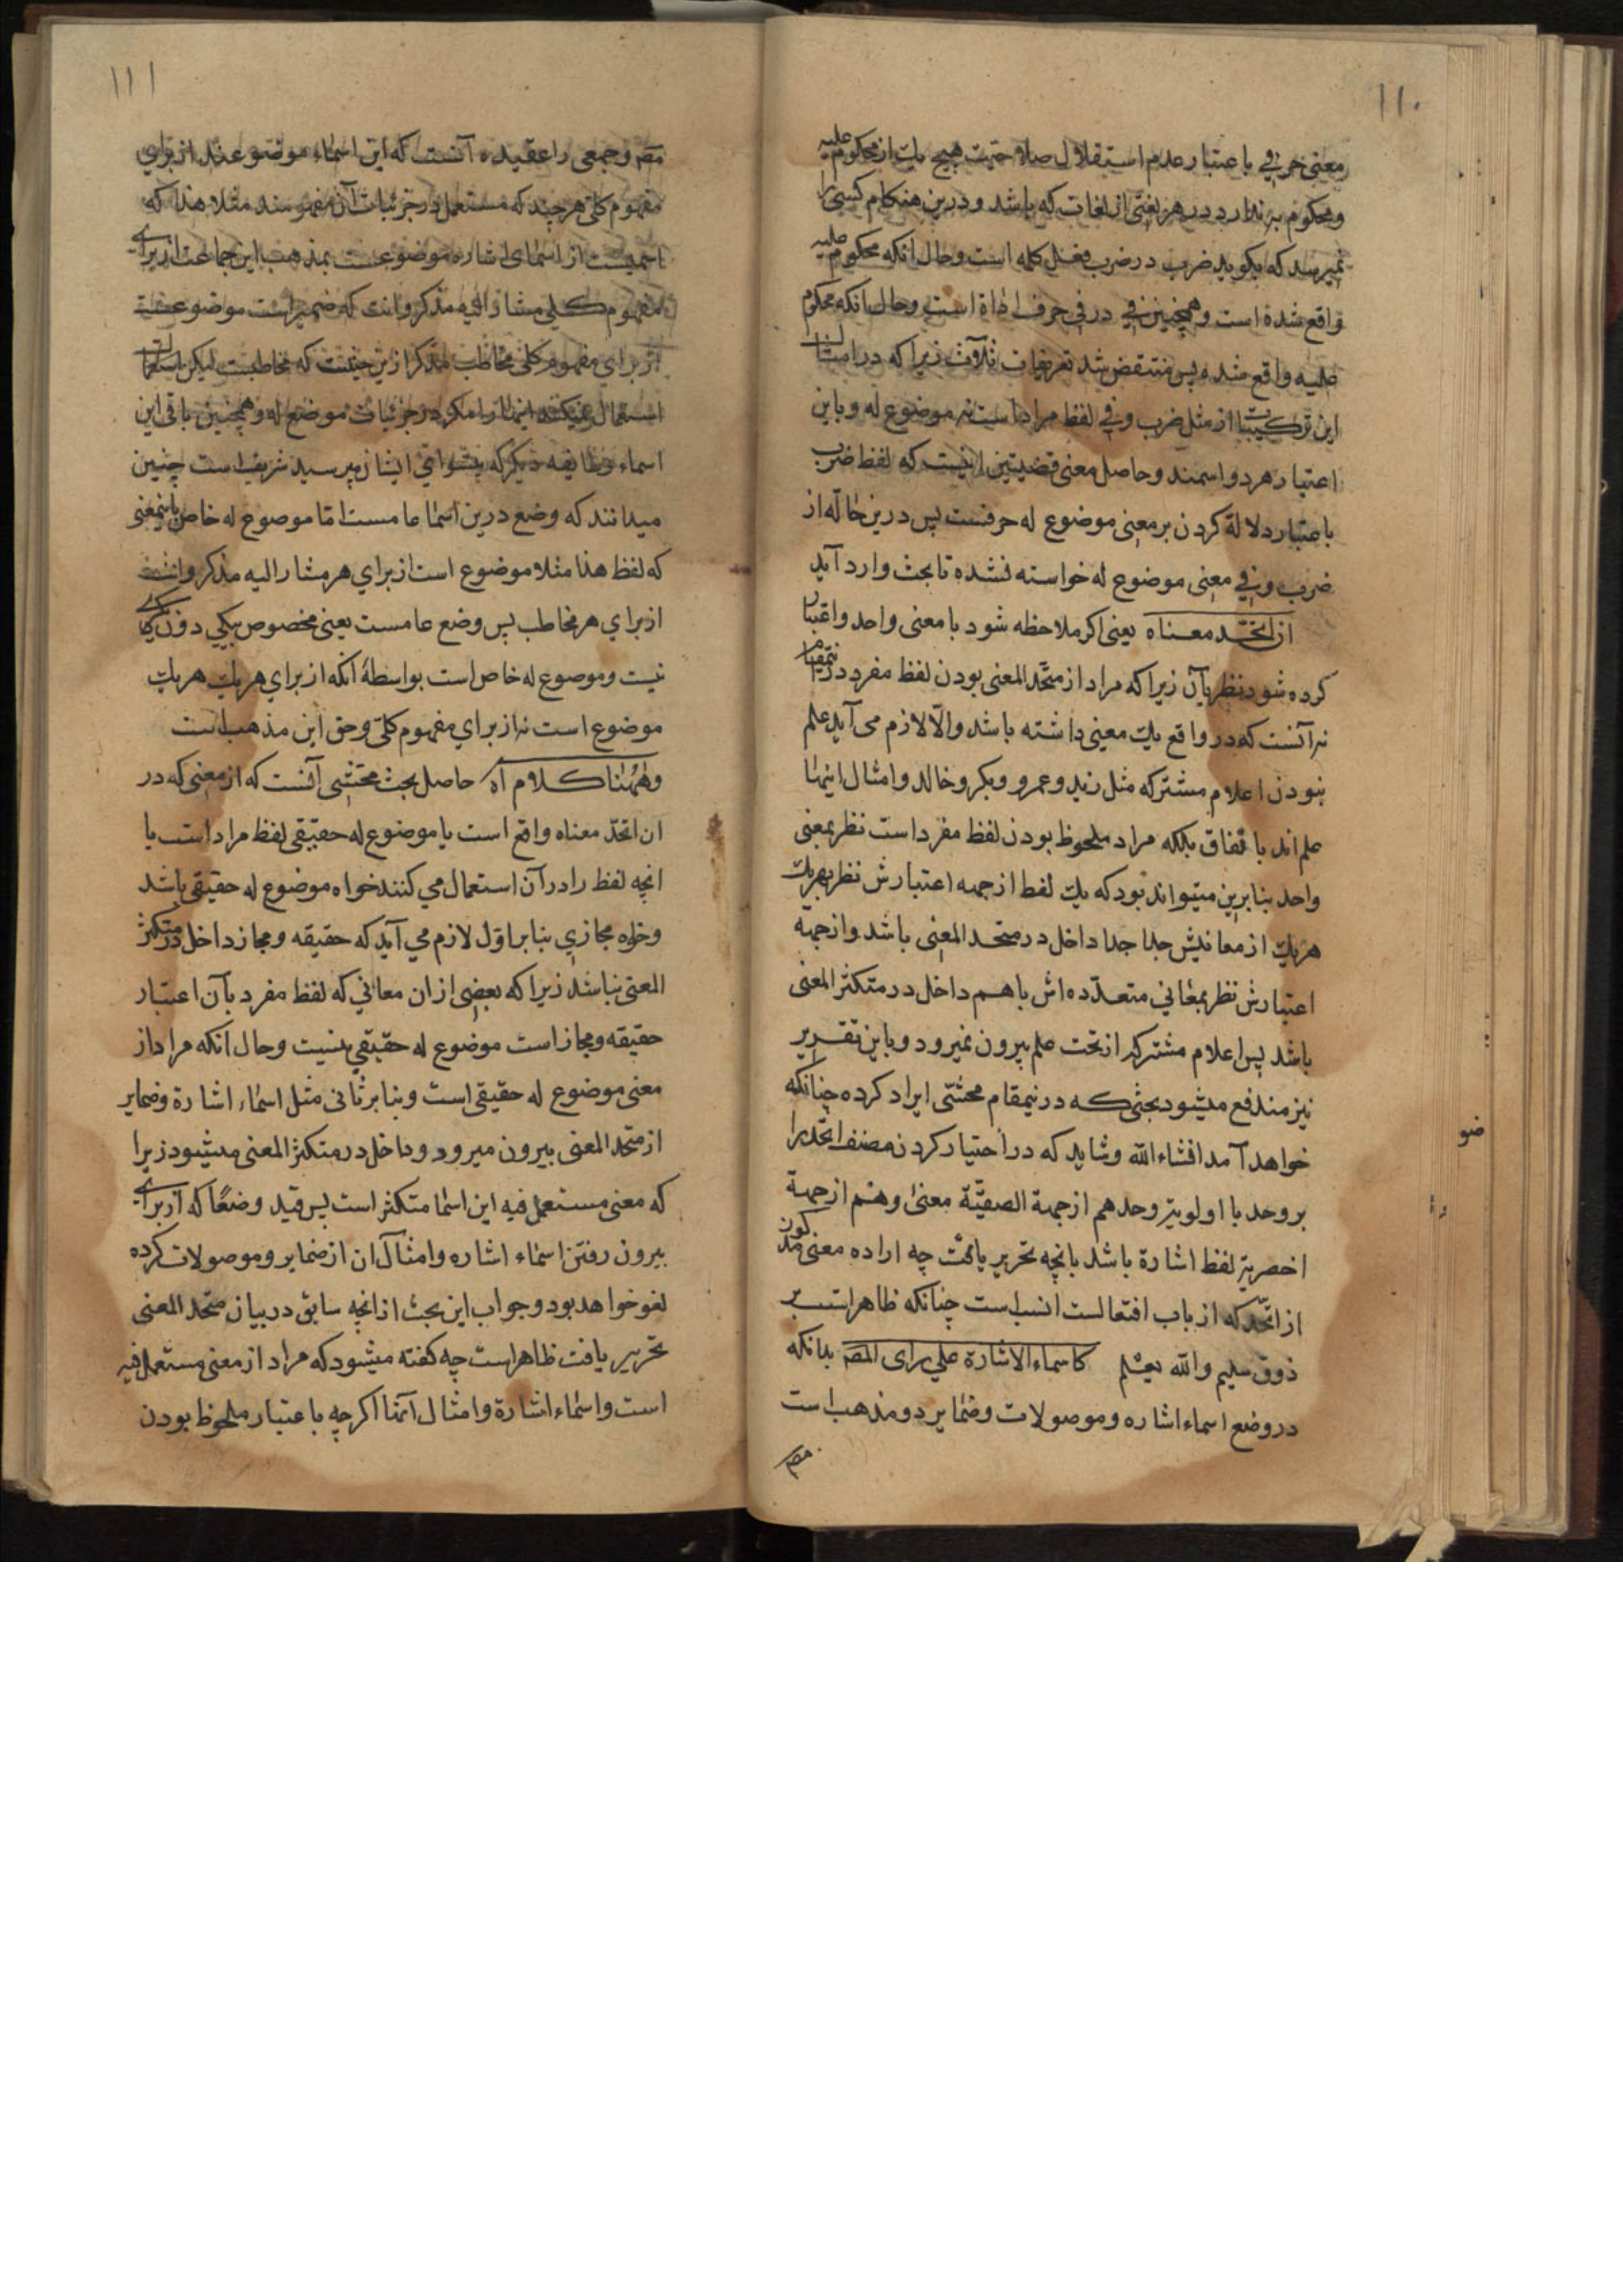 ۱۱۰
معنی حرفی باعتبار عدم استقلال صلاحیت هیچ یك از محکوم علیه
ومحکوم به ندارد در هر لغتی از لغات که باشد ودرین هنکام کسی را
نمیرسد که بکوید ضرب در ضرب فعل کلمه است وحال انکه محکوم علیه
واقع شده است وهمچنین فی در فی حرف اداة است وحال انکه محکوم
علیه واقع شده پس منتقض شد تعریفات ثلاث زیرا که در امثال
این ترکیبات از مثل ضرب وفی لفظ مراد است نه موضوع له وباین
اعتبار هر دو اسمند وحاصل معنی قضیتین اینست که لفظ ضرب
باعتبار دلالة کردن بر معنی موضوع له حرفست پس درین حاله از
ضرب وفی معنی موضوع له خواسته نشده تا بحث وارد آید
ان اتحد معناه یعنی اکر ملاحظه شود با معنی واحد واعتبار
کرده شود نظر بآن زیرا که مراد از متحد المعنی بودن لفظ مفرد درینمقام
نه آنست که در واقع یك معنی داشته باشد والا لازم می آید علم
نبودن اعلام مشترکه مثل زید وعمرو وبکر وخالد وامثال اینها
علم اند باتفاق بلکه مراد ملحوظ بودن لفظ مفرد است نظر بمعنی
واحد بنا برین میتواند بود که یك لفظ از جهه اعتبارش نظر بهر یك
هر یك از معانیش جدا جدا داخل در متحد المعنی باشد واز جهة
اعتبارش نظر بمعانی متعدده اش با هم داخل در متکثر المعنی
باشد پس اعلام مشترکه از تحت علم بیرون نمیرود وباین تقریر
نیز مندفع میشود بحثی که درینمقام محشی ایراد کرده چنانکه
خواهد آمد انشاء الله وشاید که در اختیار کردن مصنف اتحد را
بر وحد با اولویة وحد هم از جهة معنی وهم از جهة
اخصریة لفظ اشارة باشد بانچه تحریر یافت چه اراده معنی مذکور
از اتحد که از باب افتعالست انسب است چنانکه ظاهر است بر
ذوق سلیم والله یعلم کاسماء الاشارة علی رای المص بدانکه
در وضع اسماء اشاره وموصولات وضمایر دو مذهب است
مص
۱۱۱
مص وجمعی را عقیده آنست که این اسماء موضوعند از برای
مفهوم کلی هر چند که مستعمل در جزئیات آن مفهومند مثلا هذا که
اسمیست از اسمای اشاره موضوعست بمذهب این جماعت از برای
مفهوم کلی مشار الیه مذکر وانت که ضمیر است موضوعست
از برای مفهوم کلی مخاطب مذکر ازین حیثیت که مخاطبست لیکن
استعمال نمیکنند اینها را مکر در جزئیات موضوع له وهمچنین باقی این
اسماء وطایفه دیکر که پیشوای ایشان میر سید شریف است چنین
میدانند که وضع درین اسما عامست اما موضوع له خاص باینمعنی
که لفظ هذا مثلا موضوع است از برای هر مشار الیه مذکر وانت
از برای هر مخاطب پس وضع عامست یعنی مخصوص بیکی دون یکی
نیست وموضوع له خاص است بواسطۀ آنکه از برای هر یك هر یك
موضوع است نه از برای مفهوم کلی وحق این مذهب است
وههنا کلام آه حاصل بحث محشی آنست که از معنی که در
ان اتحد معناه واقع است یا موضوع له حقیقی لفظ مراد است یا
انچه لفظ را در آن استعمال می کنند خواه موضوع له حقیقی باشد
وخواه مجازی بنا بر اول لازم می آید که حقیقه ومجاز داخل در متکثر
المعنی نباشد زیرا که بعضی از ان معانی که لفظ مفرد بآن اعتبار
حقیقه ومجاز است موضوع له حقیقی نیست وحال انکه مراد از
معنی موضوع له حقیقی است وبنا بر ثانی مثل اسماء اشارة وضمایر
از متحد المعنی بیرون میرود وداخل در متکثر المعنی میشود زیرا
که معنی مستعمل فیه این اسما متکثر است پس قید وضعًا که از برای
بیرون رفتن اسماء اشاره وامثال ان از ضمایر وموصولات کرده
لغو خواهد بود وجواب این بحث از انچه سابق در بیان متحد المعنی
تحریر یافت ظاهر است چه کفته میشود که مراد از معنی مستعمل فیه
است واسماء اشارة وامثال آنها اکر چه باعتبار ملحوظ بودن